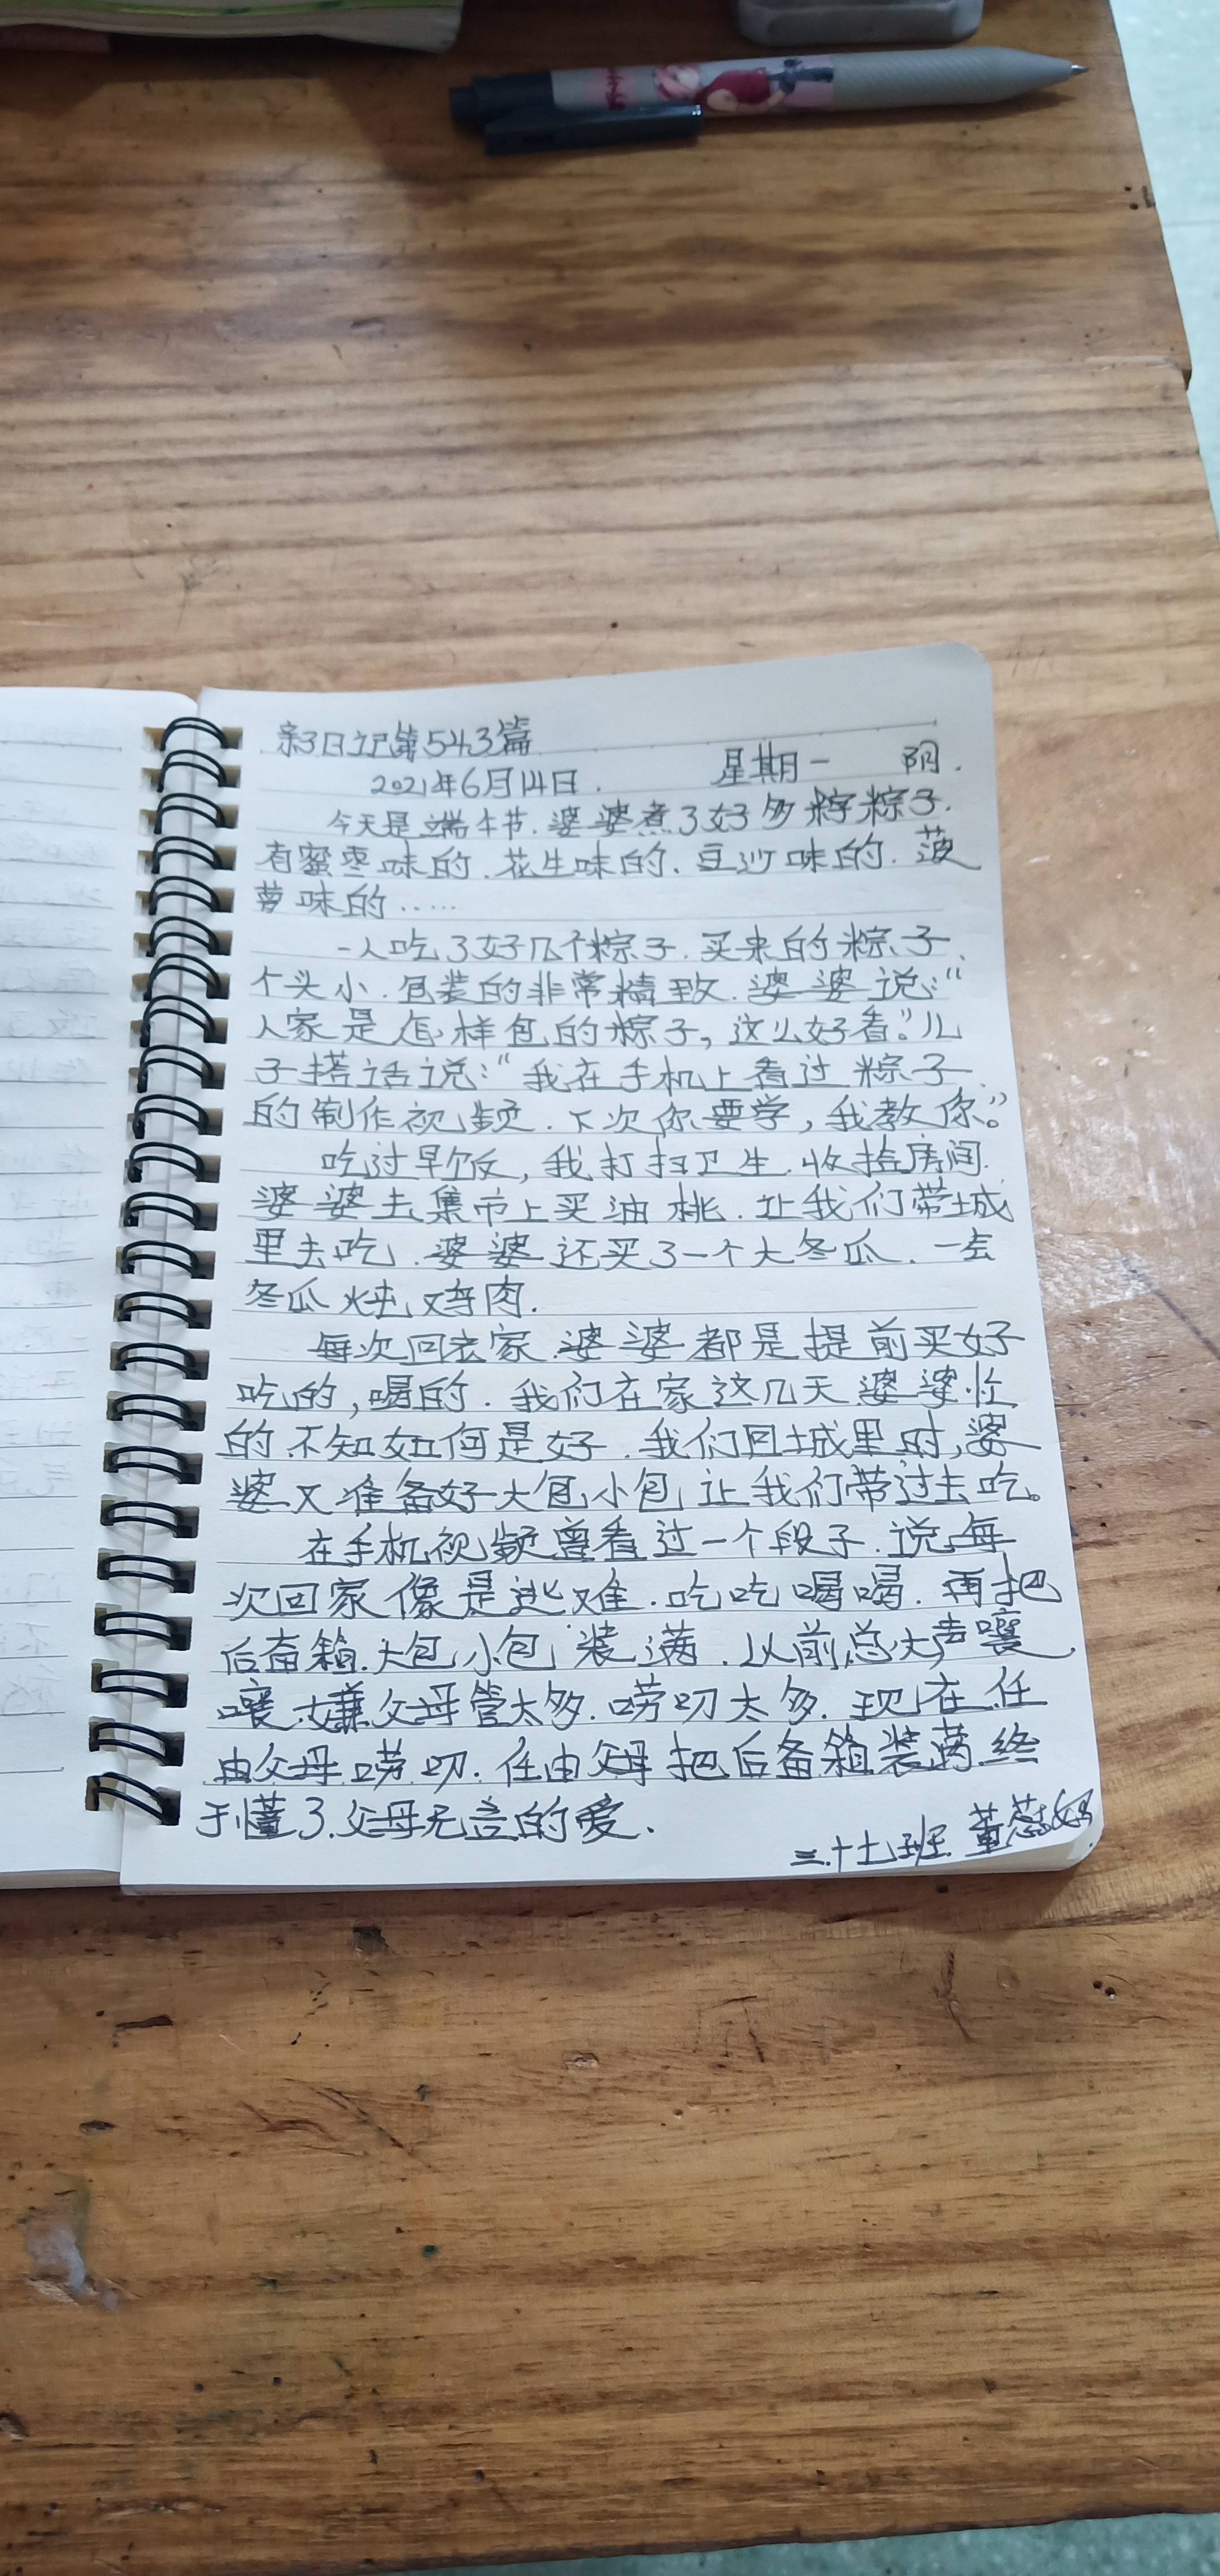 亲子日记第543篇
2021年6月14日. 星期一 阴.
今天是端午节.婆婆煮了好多粽粽子.
有蜜枣味的.花生味的.豆沙味的.菠
萝味的……
一人吃了好几个粽子.买来的粽子.
个头小.包装的非常精致.婆婆说:“
人家是怎样包的粽子,这么好看。”儿
子搭话说:“我在手机上看过粽子
的制作视频.下次你要学,我教你。”
吃过早饭,我打扫卫生.收拾房间.
婆婆去集市上买油桃.让我们带城
里去吃.婆婆还买了一个大冬瓜.一会
冬瓜炖鸡肉.
每次回老家.婆婆都是提前买好
吃的,喝的.我们在家这几天婆婆忙
的不知如何是好.我们回城里时,婆
婆又准备好大包小包让我们带过去吃。
在手机视频曾看过一个段子.说每
次回家像是逃难.吃吃喝喝.再把
后备箱.大包小包装满.以前总大声嚷
嚷.嫌父母管太多.唠叨太多.现在任
由父母唠叨.任由父母把后备箱装满.终
于懂了.父母无言的爱.
三.十七班.董蕊妈